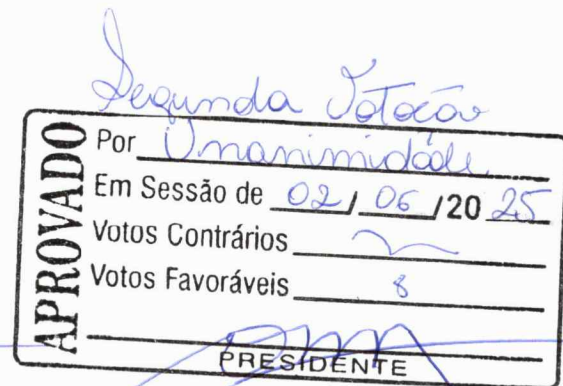 Segunda Votação
APROVADO
Por Unanimidade
Em Sessão de 02 / 06 /20 25
Votos Contrários
Votos Favoráveis 8
PRESIDENTE